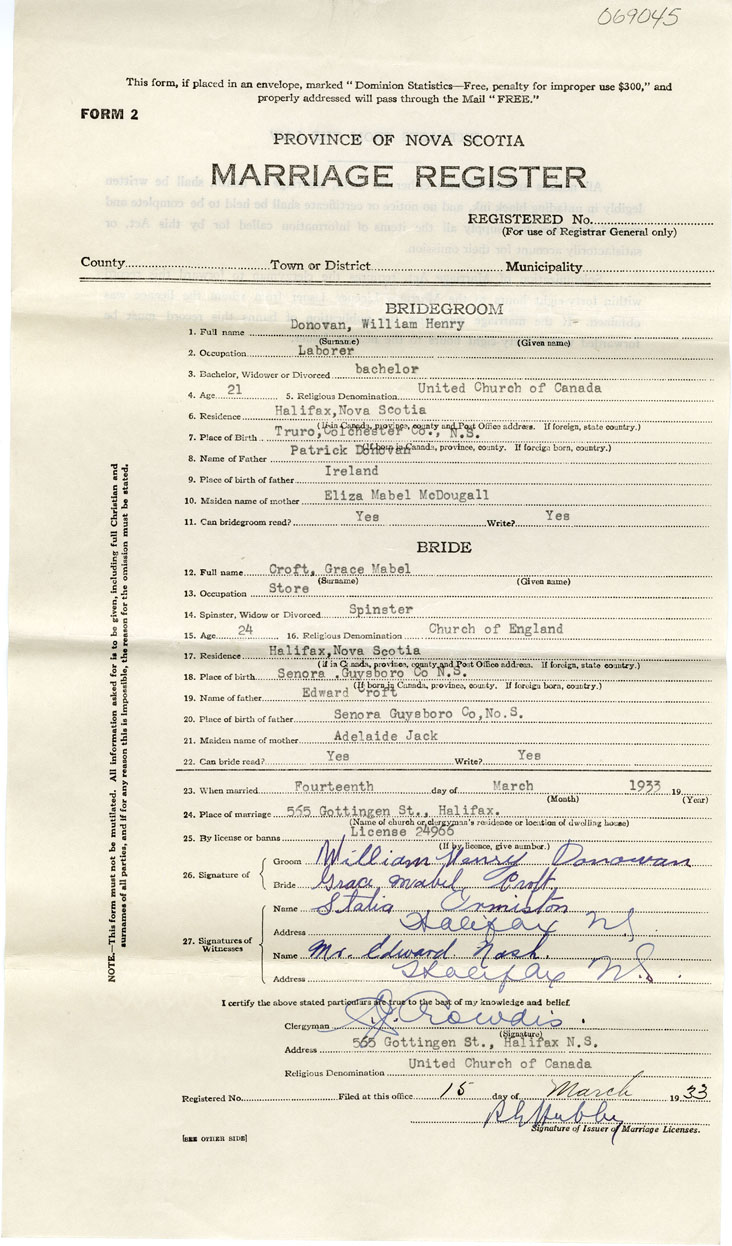 069045
This form, if placed in an envelope, marked "Dominion Statistics—Free, penalty for improper use $300," and
properly addressed will pass through the Mail "FREE."
FORM 2
PROVINCE OF NOVA SCOTIA
MARRIAGE REGISTER
REGISTERED No.
(For use of Registrar General only)
County Town or District Municipality
BRIDEGROOM
1. Full name Donovan, William Henry
(Surname) (Given name)
2. Occupation Laborer
3. Bachelor, Widower or Divorced bachelor
4. Age 21 5. Religious Denomination United Church of Canada
6. Residence Halifax,Nova Scotia
(If in Canada, province, county and Post Office address. If foreign, state country.)
7. Place of Birth Truro,Colchester Co., N.S.
(If born in Canada, province, county. If foreign born, country.)
8. Name of Father Patrick Donovan
9. Place of birth of father Ireland
10. Maiden name of mother Eliza Mabel McDougall
11. Can bridegroom read? Yes Write? Yes
BRIDE
12. Full name Croft, Grace Mabel
(Surname) (Given name)
13. Occupation Store
14. Spinster, Widow or Divorced Spinster
15. Age 24 16. Religious Denomination Church of England
17. Residence Halifax,Nova Scotia
(If in Canada, province, county and Post Office address. If foreign, state country.)
18. Place of birth Senora ,Guysboro Co N.S.
(If born in Canada, province, county. If foreign born, country.)
19. Name of father Edward Croft
20. Place of birth of father Senora Guysboro Co,No.S.
21. Maiden name of mother Adelaide Jack
22. Can bride read? Yes Write? Yes
23. When married Fourteenth day of March 1933 19
(Month) (Year)
24. Place of marriage 565 Gottingen St., Halifax.
(Name of church or clergyman's residence or location of dwelling house)
25. By license or banns License 24966
(If by licence, give number.)
26. Signature of
Groom William Henry Donowan
Bride Grace Mabel Croft
27. Signatures of Witnesses
Name Stalia Ermiston
Address Halifax NS
Name Mr. Edward Nash.
Address Halifax N.S.
I certify the above stated particulars are true to the best of my knowledge and belief.
Clergyman Crowdis.
(Signature)
Address 565 Gottingen St., Halifax N.S.
Religious Denomination United Church of Canada
Registered No. Filed at this office 15 day of March 1933
Hubby
Signature of Issuer of Marriage Licenses.
[SEE OTHER SIDE]
NOTE.—This form must not be mutilated. All information asked for is to be given, including full Christian and
surnames of all parties, and if for any reason this is impossible, the reason for the omission must be stated.